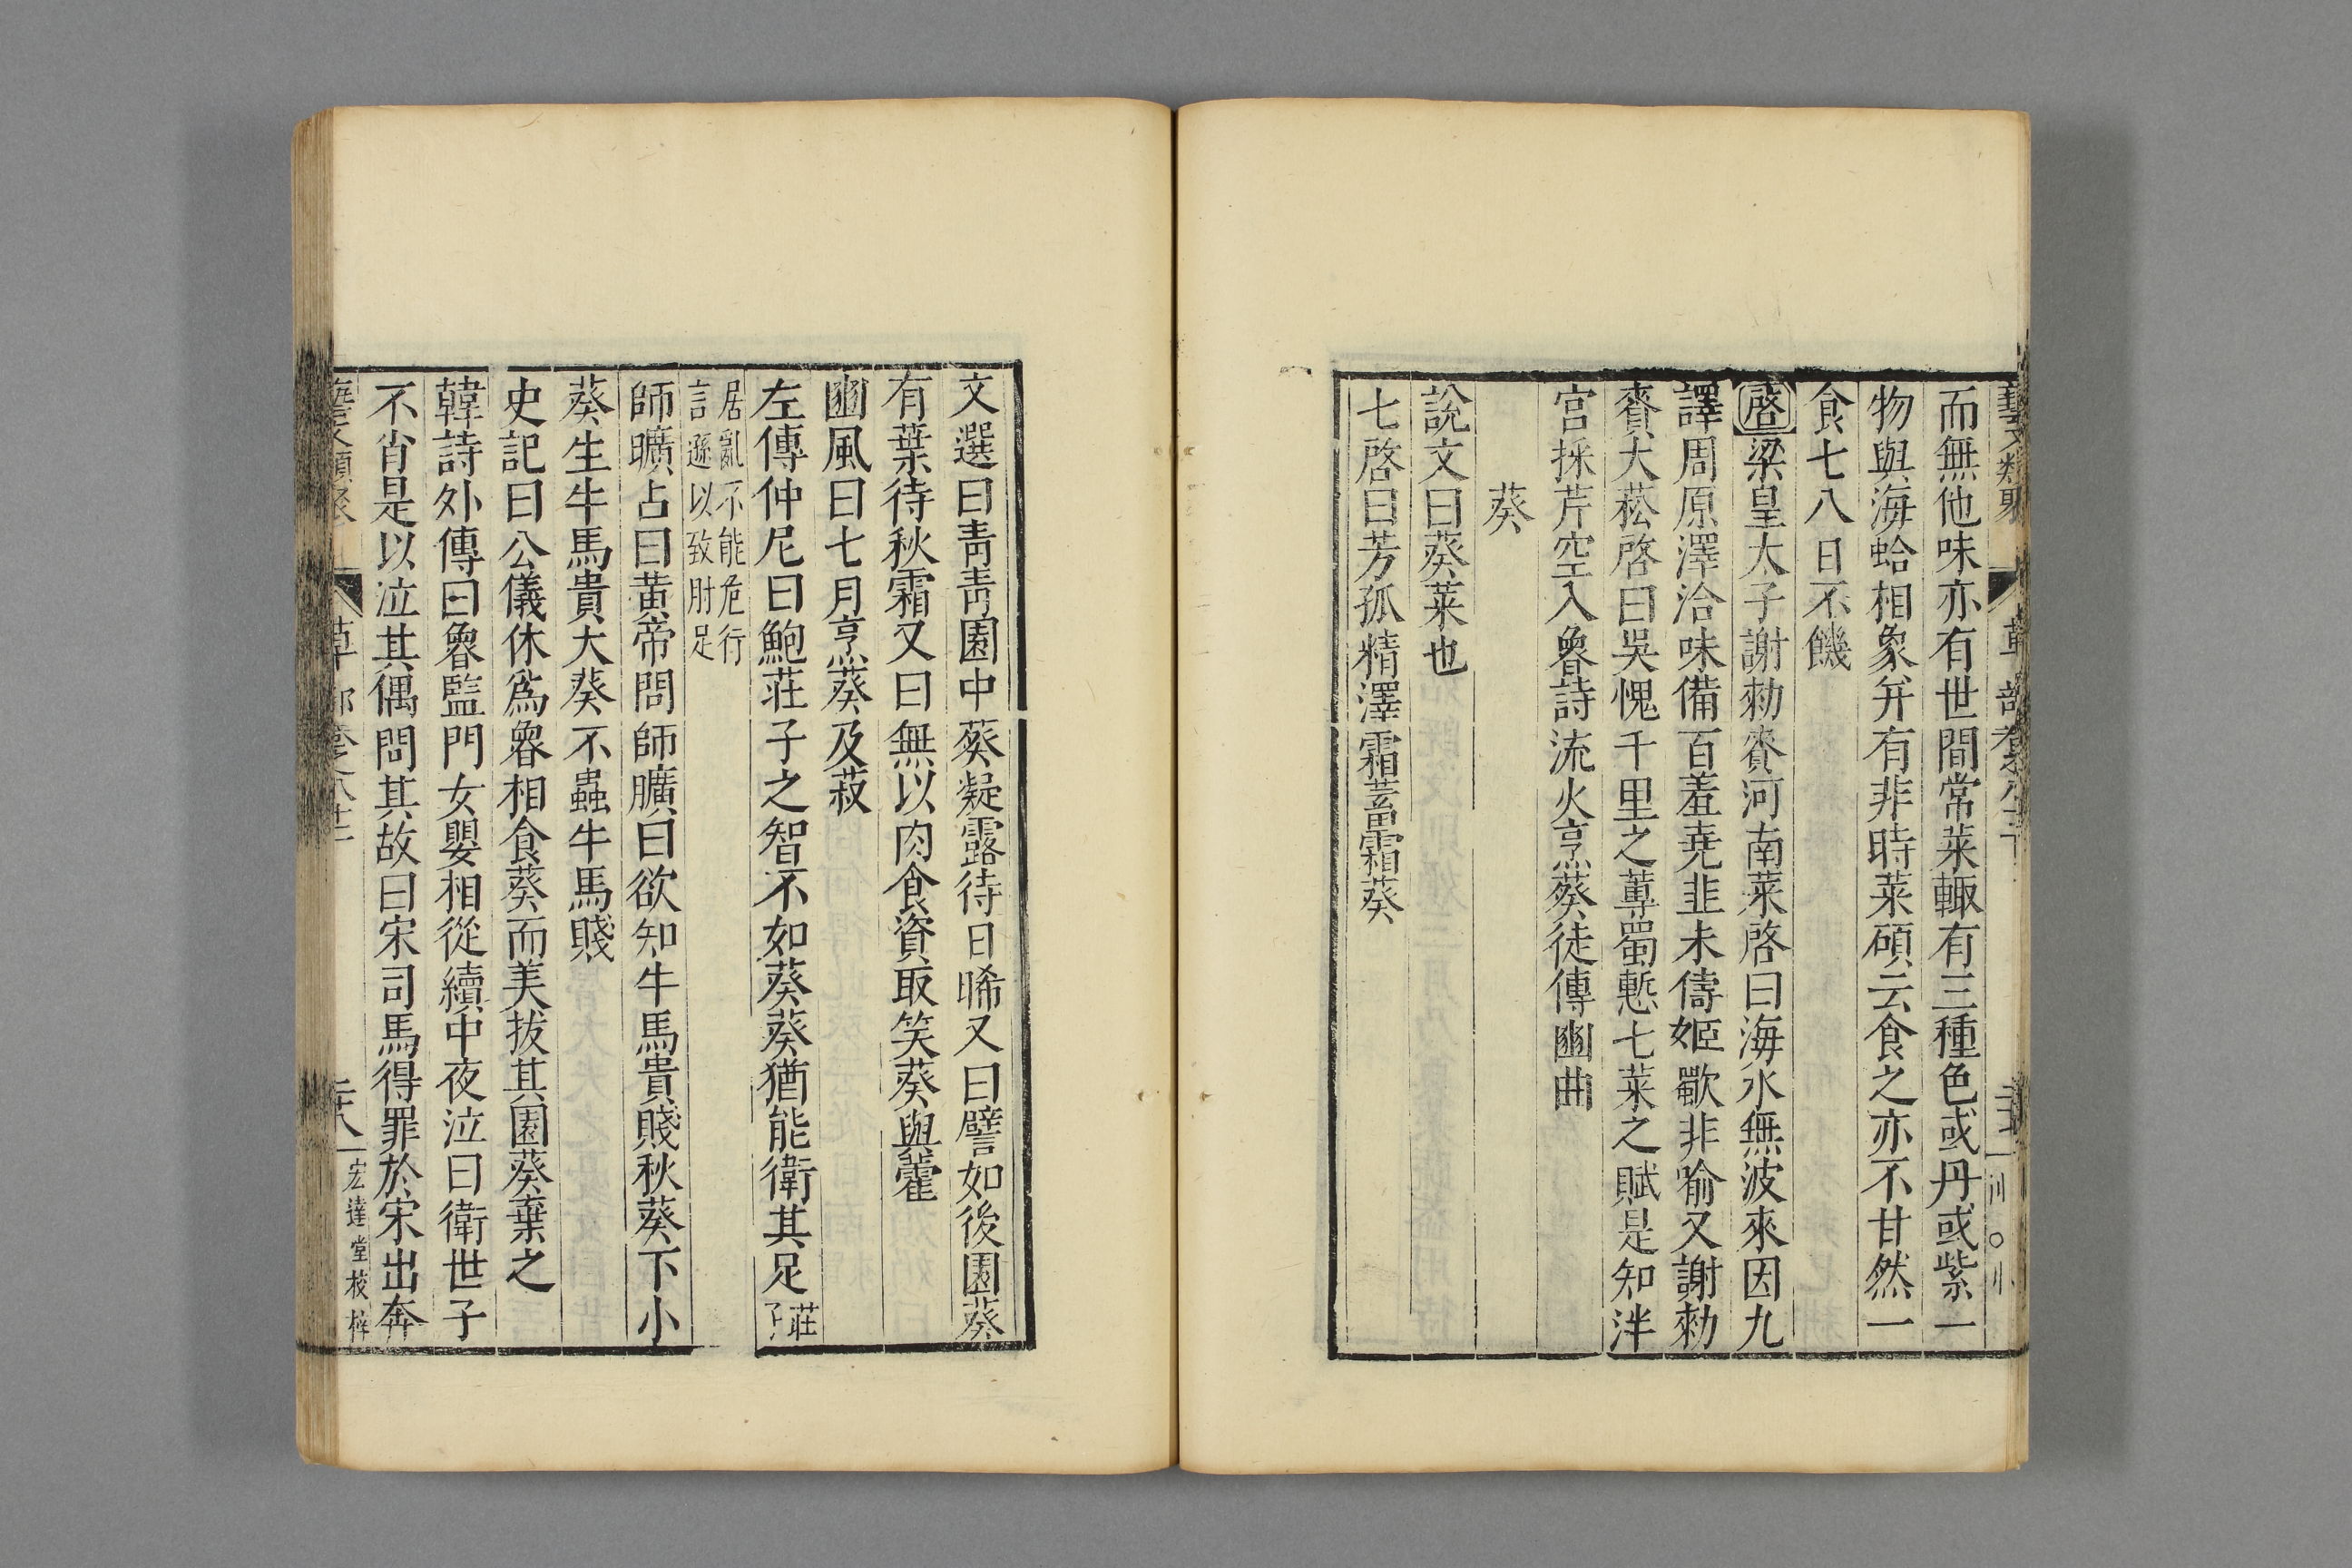 而無他味亦有世間常菜輙有三種色或丹或紫一
物與海蛤相象并有非時菜碩云食之亦不甘然一
食七八日不饑
啓梁皇太子謝勑賚河南菜啓曰海水無波來因九
譯周原澤洽味備百羞堯韭未儔姬歜非喻又謝勑
賚大菘啓曰吳愧千里之蓴蜀慙七菜之賦是知泮
宫採芹空入魯詩流火烹葵徒傳豳曲
葵
說文曰葵菜也
七啓曰芳孤精澤霜蓄露葵
文選曰青青園中葵凝露待日晞又曰譬如後園葵
有葉待秋霜又曰無以肉食資取笑葵與藿
豳風曰七月烹葵及菽
左傳仲尼曰鮑莊子之智不如葵葵猶能衛其足莊子
居亂不能危行
言遜以致刖足
師曠占曰黃帝問師曠曰欲知牛馬貴賤秋葵下小
葵生牛馬貴大葵不蟲牛馬賤
史記曰公儀休爲魯相食葵而美拔其園葵棄之
韓詩外傳曰魯監門女嬰相從績中夜泣曰衛世子
不肖是以泣其偶問其故曰宋司馬得罪於宋出奔
宏達堂校梓